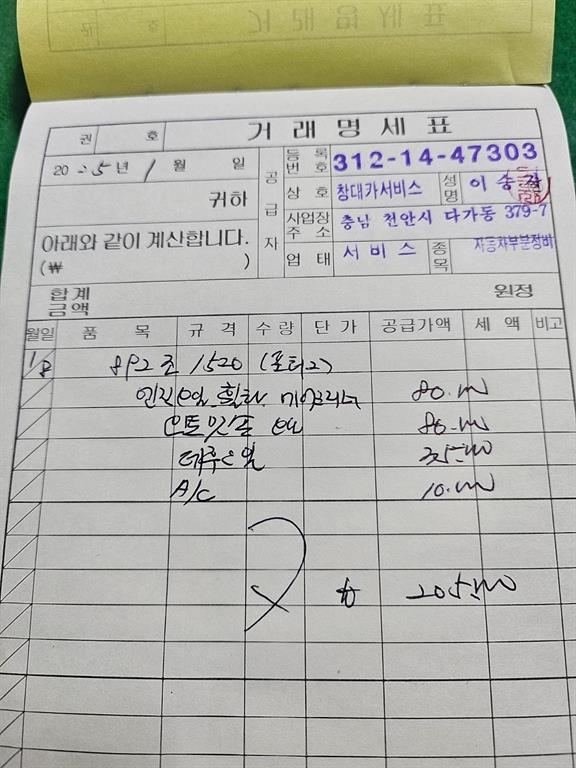 권 호 거래명세표
2025년 1월 일
귀하
아래와 같이 계산합니다.
(₩ )
공급자
등록번호 312-14-47303
상호 창대카서비스 성명 이승
사업장주소 충남 천안시 다가동 379-7
업태 서비스 종목 자동차부분정비
합계금액 원정
월일 품목 규격 수량 단가 공급가액 세액 비고
1/8 892조 1520 (포터2)
엔진오일 휠타 에어크리너 80.000
오토밋숀 오일 80.000
데후오일 35.000
A/C 10.000
₩ 205.000